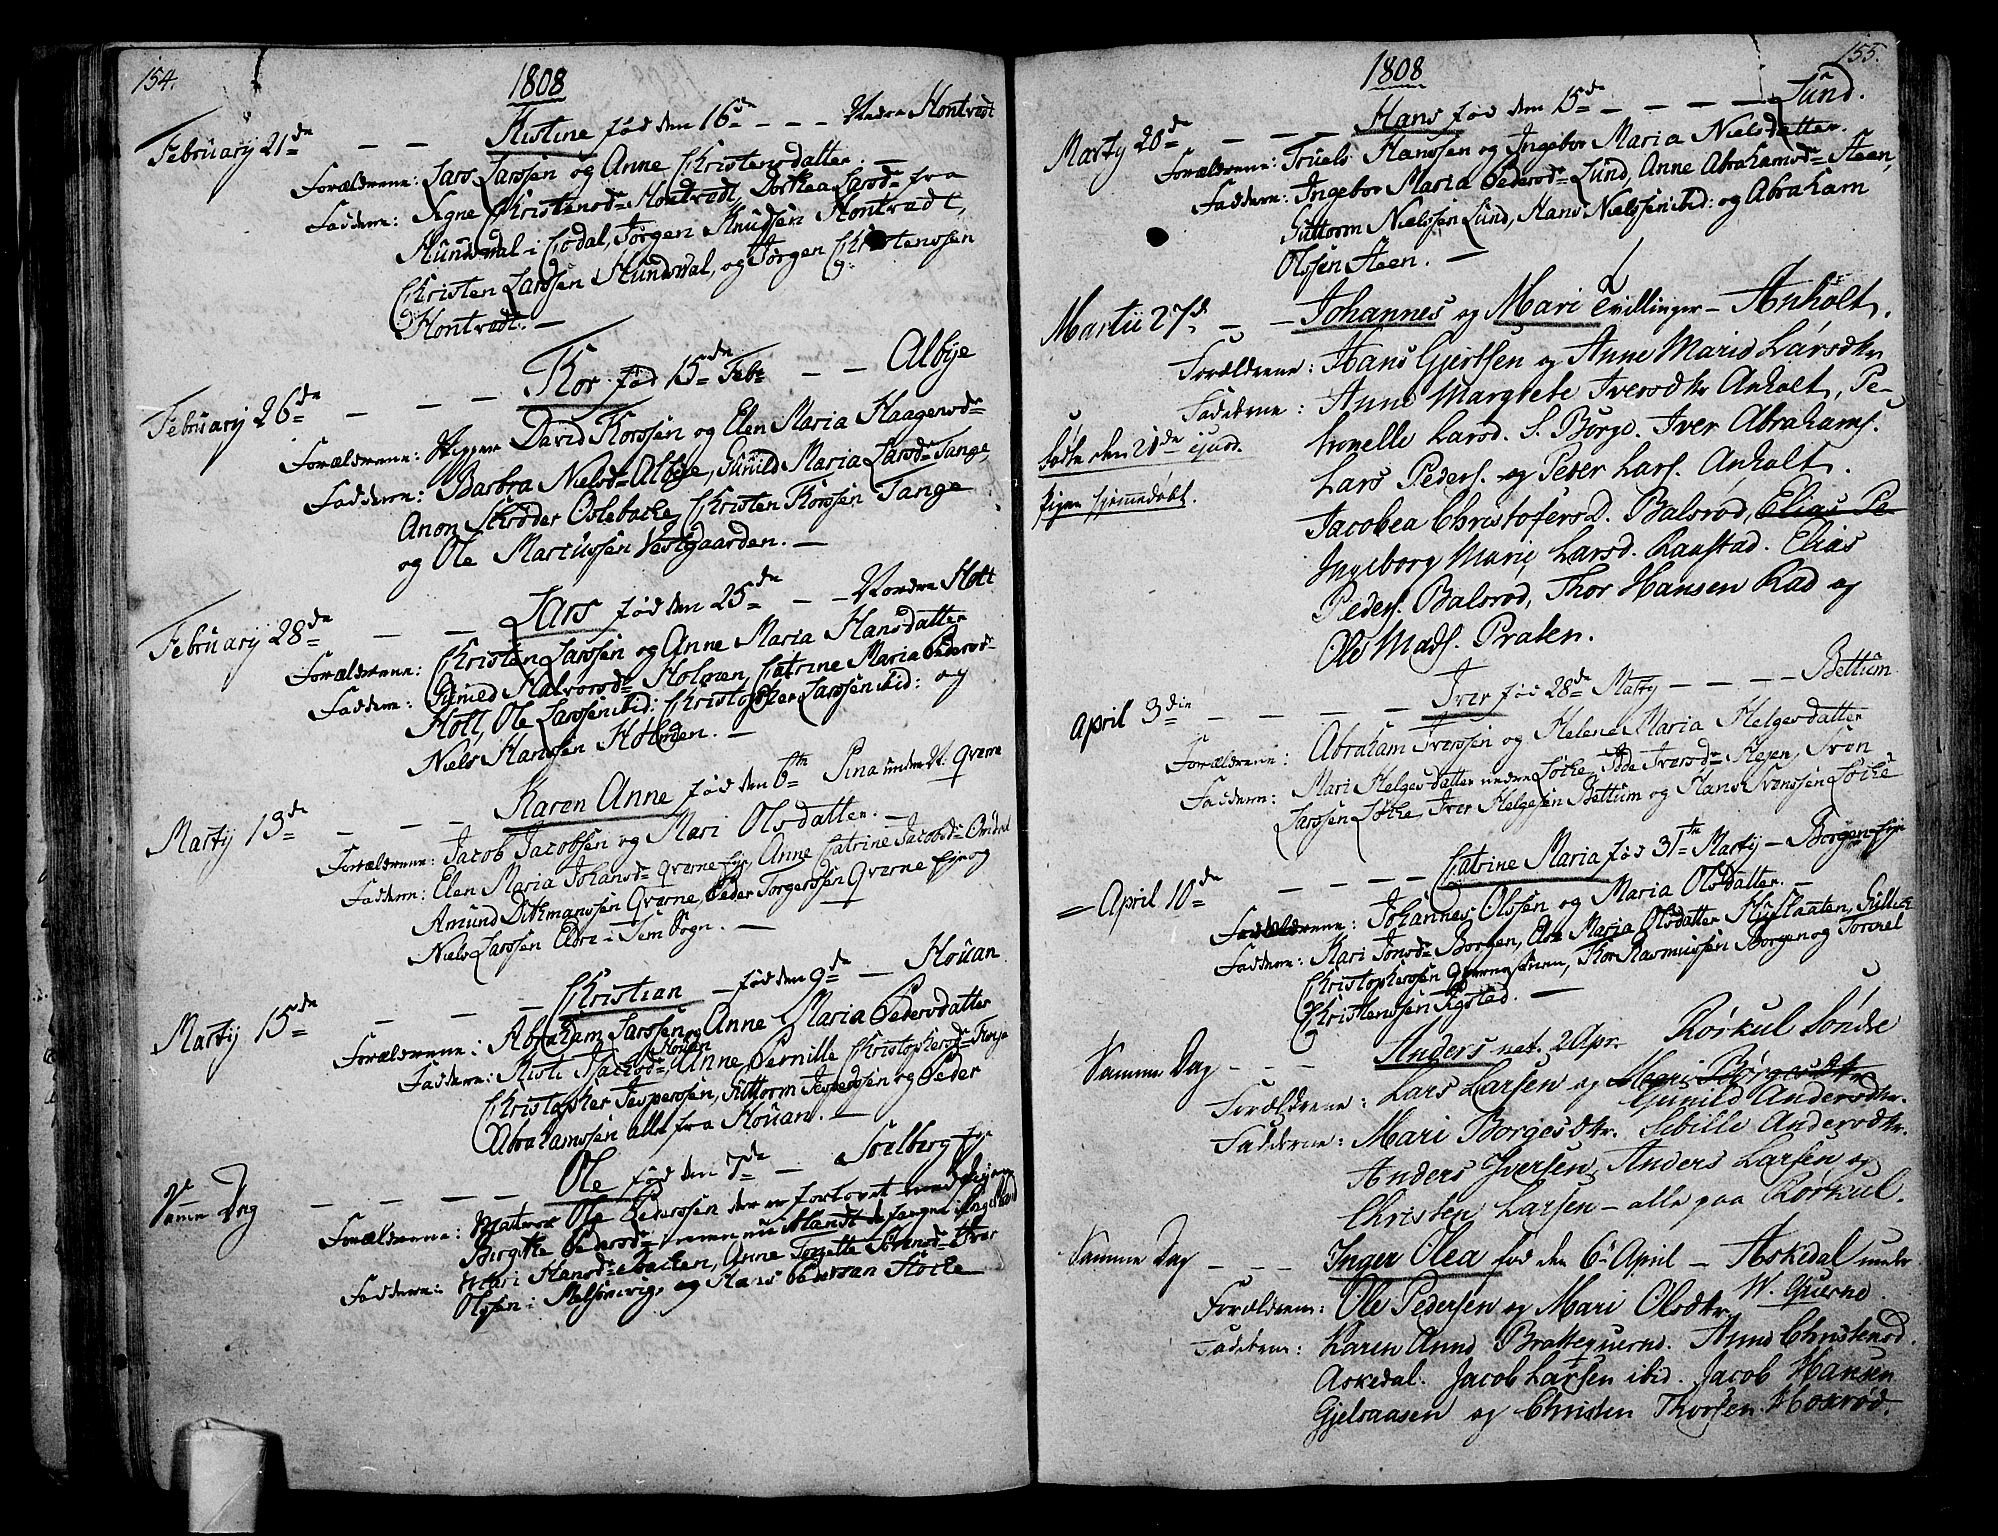 154.
1808
Februarÿ 21de — — Kistine fød den 16de — — — Nedre Hontvedt
Forældrene: Lars Larssen og Anne Christensdatter. —
Faddene: Signe Christensd= Hontvedt, Dorthea Larsd= fra
Hundsdal i Eidal, Jørgen Knudsen Hontvedt,
Christen Larssen Hundsdal, og Jørgen Christenssen
Hontvedt. —
Februarÿ 26de — — — Thor fød 15de Febr — — Albÿe
Forældrene: David Thorssen og Elen Maria Haagensd=
Faddene: Barbra Nielsd= Albÿe, Gunild Maria Larsd= Tange,
Anon Schrøder Oslebacke, Christen Thorssen Tange
og Ole Mariussen Vestgaarden. —
Februarÿ 28de — — Lars fød den 25de — — Nordre Holt
Forældrene: Christen Larssen og Anne Maria Hansdatter
Faddene: Gunild Halvorsd= Holmen, Catrine Maria Pedersd=
Holt, Ole Larssen ibid: Christopher Larssen ibid: og
Niels Hanssen Holmen. —
Martÿ 13de — — — Karen Anne fød den 6te Pina under V. Qverne
Forældrene: Jacob Jacobsen og Mari Olsdatter. —
Faddene: Elen Maria Johansd= Qverne eje, Anne Catrine Jacobsd=
Amund Ditkmanssen Qverne, Peder Torgerssen Qverne eje og
Niels Larssen i Sem Sogn. —
Martÿ 15de — — — Christian — fød den 9de — Houan
Forældrene: Abraham Larssen og Anne Maria Pedersdatter
Houan
Faddene: Kisti Jsacksd=, Anne Pernille Christophersd=
Christopher Jesperssen, Guttorm Jesperssen og Peder
Abrahamssen alle fra Houan. —
Samme Dag — — — — Ole fød den 7de — Solberg eje
Forældrene: Matros Ole Pederssen der er forlovet med
Birgithe Pedersd=
Faddene: Mari Hansd= Backen, Anne Torgette Sørensd=
Olssen i Melsomvig, og Hans Pedersen Holche
155.
1808
Martÿ 20de — — — Hans fød den 15de — — — — Lund.
Forældrene: Truels Hanssen og Ingebor Maria Nielsdatter.
Faddene: Ingebor Maria Pedersd= Lund, Anne Abrahamsd= Steen,
Guttorm Nielssen Lund, Hans Nielssen ibid: og Abraham
Olssen Steen. —
Martii 27d. — — Johannes og Mari Tvillinger — Anholt.
Forældrene: Hans Gjertsen og Anne Marie Larsdtr
Faddene: Anne Margrete Iversdtr Anholt, Pe-
tronelle Larsd. S. Borge. Iver Abrahams.
Fødte den 21de ejusd.
Lars Peders. og Peder Lars. Anholt.
Pigen hjemmedøbt.
Jacobea Christofersd. Balsrød, Elias Pe-
Ingeborg Marie Larsd. Raastad. Elias
Peders. Balsrød, Thor Hansen Rad og
Ole Mads. Præten.
April 3die — — — — Iver fød 28de Martÿ — — — — Bettum
Forældrene: Abraham Iverssen og Helene Maria Helgesdatter
Faddene: Mari Helgesdatter nedre Løche, Iverd= Stejen, Svon
Larssen Løche, Iver Helgesen Bettum og Hans Svenssen Løche
= April 10de — — — — Catrine Maria fød 31te Martÿ — Borgen eje
Forældrene: Johannes Olssen og Maria Olsdatter. —
Faddene: Kari Jonsd= Borgen, Ane Maria Olsdatter
Christopherssen, Thor Rasmussen Borgen og
Christenssen Sigstad. —
Samme Dag — — — Anders nat. 2 Apr. Rørkul Søndre
Forældrene: Lars Larsen og Mari Børgesdtr
Gunild Andersdtr.
Faddene: Mari Børgesdtr. Sibille Andersdtr.
Anders Iversen, Anders Larsen og
Christen Larsen — alle paa Rørkul.
Samme Dag — — — Inger Olea fød den 6te April — Askedal under
W. Quærne.
Forældrene: Ole Pedersen og Mari Olsdtr
Faddene: Karen Anne Brattequerne. Anne Christensd.
Askedal. Jacob Larsen ibid. Jacob Hansen
Gjelsaasen og Christen Thorsen Moxrød.